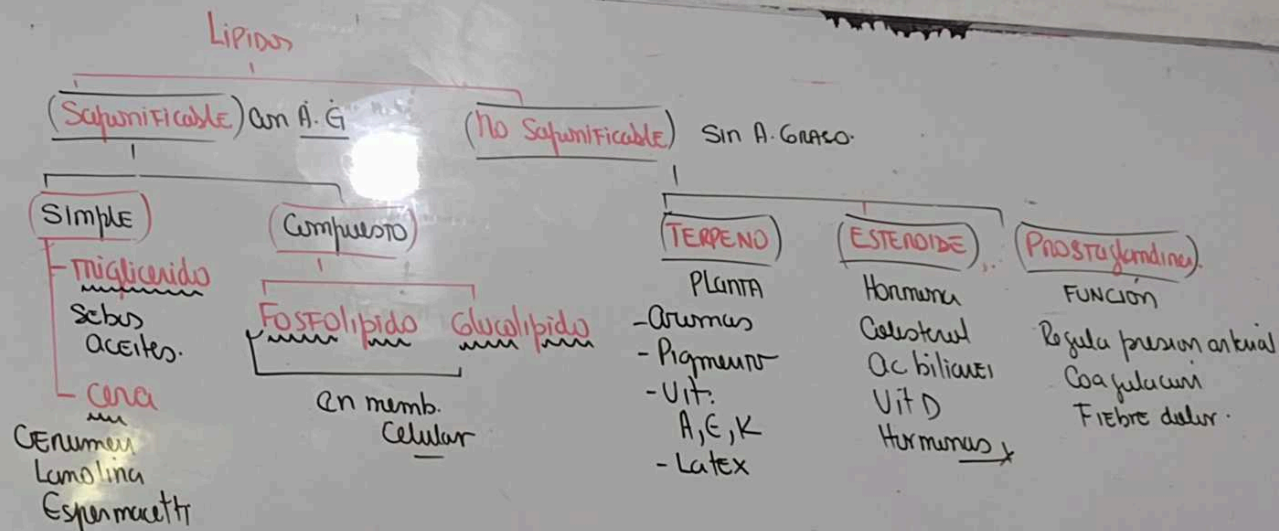 Lipidos
(Saponificable) con A. G
(No Saponificable) Sin A. Graso.
(Simple)
- Triglicerido
Sebos
aceites.
- Cera
Cerumen
Lanolina
Espermacetti
(Compuesto)
Fosfolipido Glucolipido
en memb.
Celular
(TERPENO)
Planta
- aromas
- Pigmento
- Vit.
A, E, K
- Latex
(ESTEROIDE)
Hormona
Colesterol
Ac biliares
Vit D
Hormonas x
(Prostaglandinas).
FUNCIÓN
Regula presion arterial
Coagulacion
Fiebre dolor.